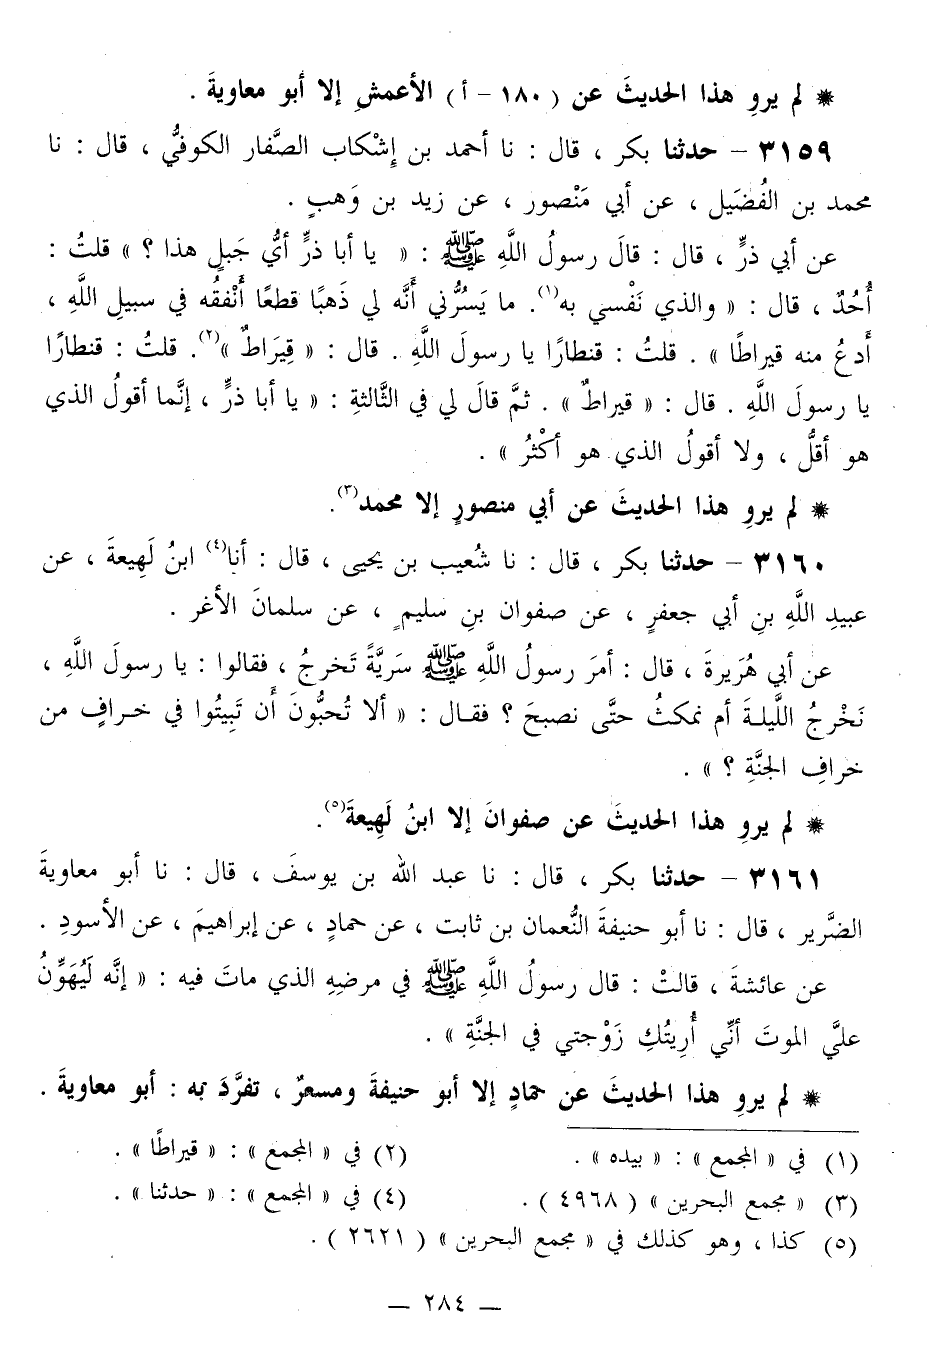 * لم يروِ هذا الحديثَ عن ( ١٨٠ - أ ) الأعمشِ إلا أبو معاويةَ .
٣١٥٩ - حدثنا بكر ، قال : نا أحمد بن إِشْكاب الصَّفار الكوفيُّ ، قال : نا
محمد بن الفُضَيل ، عن أبي مَنْصور ، عن زيد بن وَهبٍ .
عن أبي ذرٍّ ، قال : قالَ رسولُ اللَّهِ ﷺ : « يا أبا ذرٍّ أيُّ جَبلٍ هذا ؟ » قلتُ :
أُحُدٌ ، قال : « والذي نَفْسي به(١). ما يَسرُّني أنَّه لي ذَهبًا قطعًا أُنْفقُه في سبيلِ اللَّهِ ،
أدعُ منه قيراطًا » . قلتُ : قنطارًا يا رسولَ اللَّهِ . قال : « قِيَراطٌ »(٢). قلتُ : قنطارًا
يا رسولَ اللَّهِ . قال : « قيراطٌ » . ثمَّ قالَ لي في الثَّالثةِ : « يا أبا ذرٍّ ، إنَّما أقولُ الذي
هو أقلُّ ، ولا أقولُ الذي هو أكْثرُ » .
* لم يروِ هذا الحديثَ عن أبي منصورٍ إلا محمد(٣).
٣١٦٠ - حدثنا بكر ، قال : نا شُعيب بن يحيى ، قال : أنا(٤) ابنُ لَهِيعةَ ، عن
عبيدِ اللَّهِ بنِ أبي جعفرٍ ، عن صفوان بنِ سليمٍ ، عن سلمانَ الأغر .
عن أبي هُرَيرةَ ، قال : أمرَ رسولُ اللَّهِ ﷺ سَريَّةً تَخرجُ ، فقالوا : يا رسولَ اللَّهِ ،
نَخْرجُ اللَّيلةَ أم نمكثُ حتَّى نصبحَ ؟ فقال : « ألا تُحبُّونَ أَن تَبِيتُوا في خرافٍ من
خرافِ الجنَّةِ ؟ » .
* لم يروِ هذا الحديثَ عن صفوانَ إلا ابنُ لَهِيعةَ(٥).
٣١٦١ - حدثنا بكر ، قال : نا عبد الله بن يوسفَ ، قال : نا أبو معاويةَ
الضَّرير ، قال : نا أبو حنيفةَ النُّعمان بن ثابت ، عن حمادٍ ، عن إبراهيمَ ، عن الأسودِ .
عن عائشةَ ، قالتْ : قال رسولُ اللَّهِ ﷺ في مرضِهِ الذي ماتَ فيه : « إنَّه لَيُهَوِّنُ
عليَّ الموتَ أنِّي أُرِيتُكِ زَوْجتي في الجنَّةِ » .
* لم يروِ هذا الحديثَ عن حمادٍ إلا أبو حنيفةَ ومسعرٌ ، تفرَّدَ به : أبو معاويةَ .
(١) في « المجمع » : « بيده » .
(٢) في « المجمع » : « قيراطًا » .
(٣) « مجمع البحرين » ( ٤٩٦٨ ) .
(٤) في « المجمع » : « حدثنا » .
(٥) كذا ، وهو كذلك في « مجمع البحرين » ( ٢٦٢١ ) .
— ٢٨٤ —